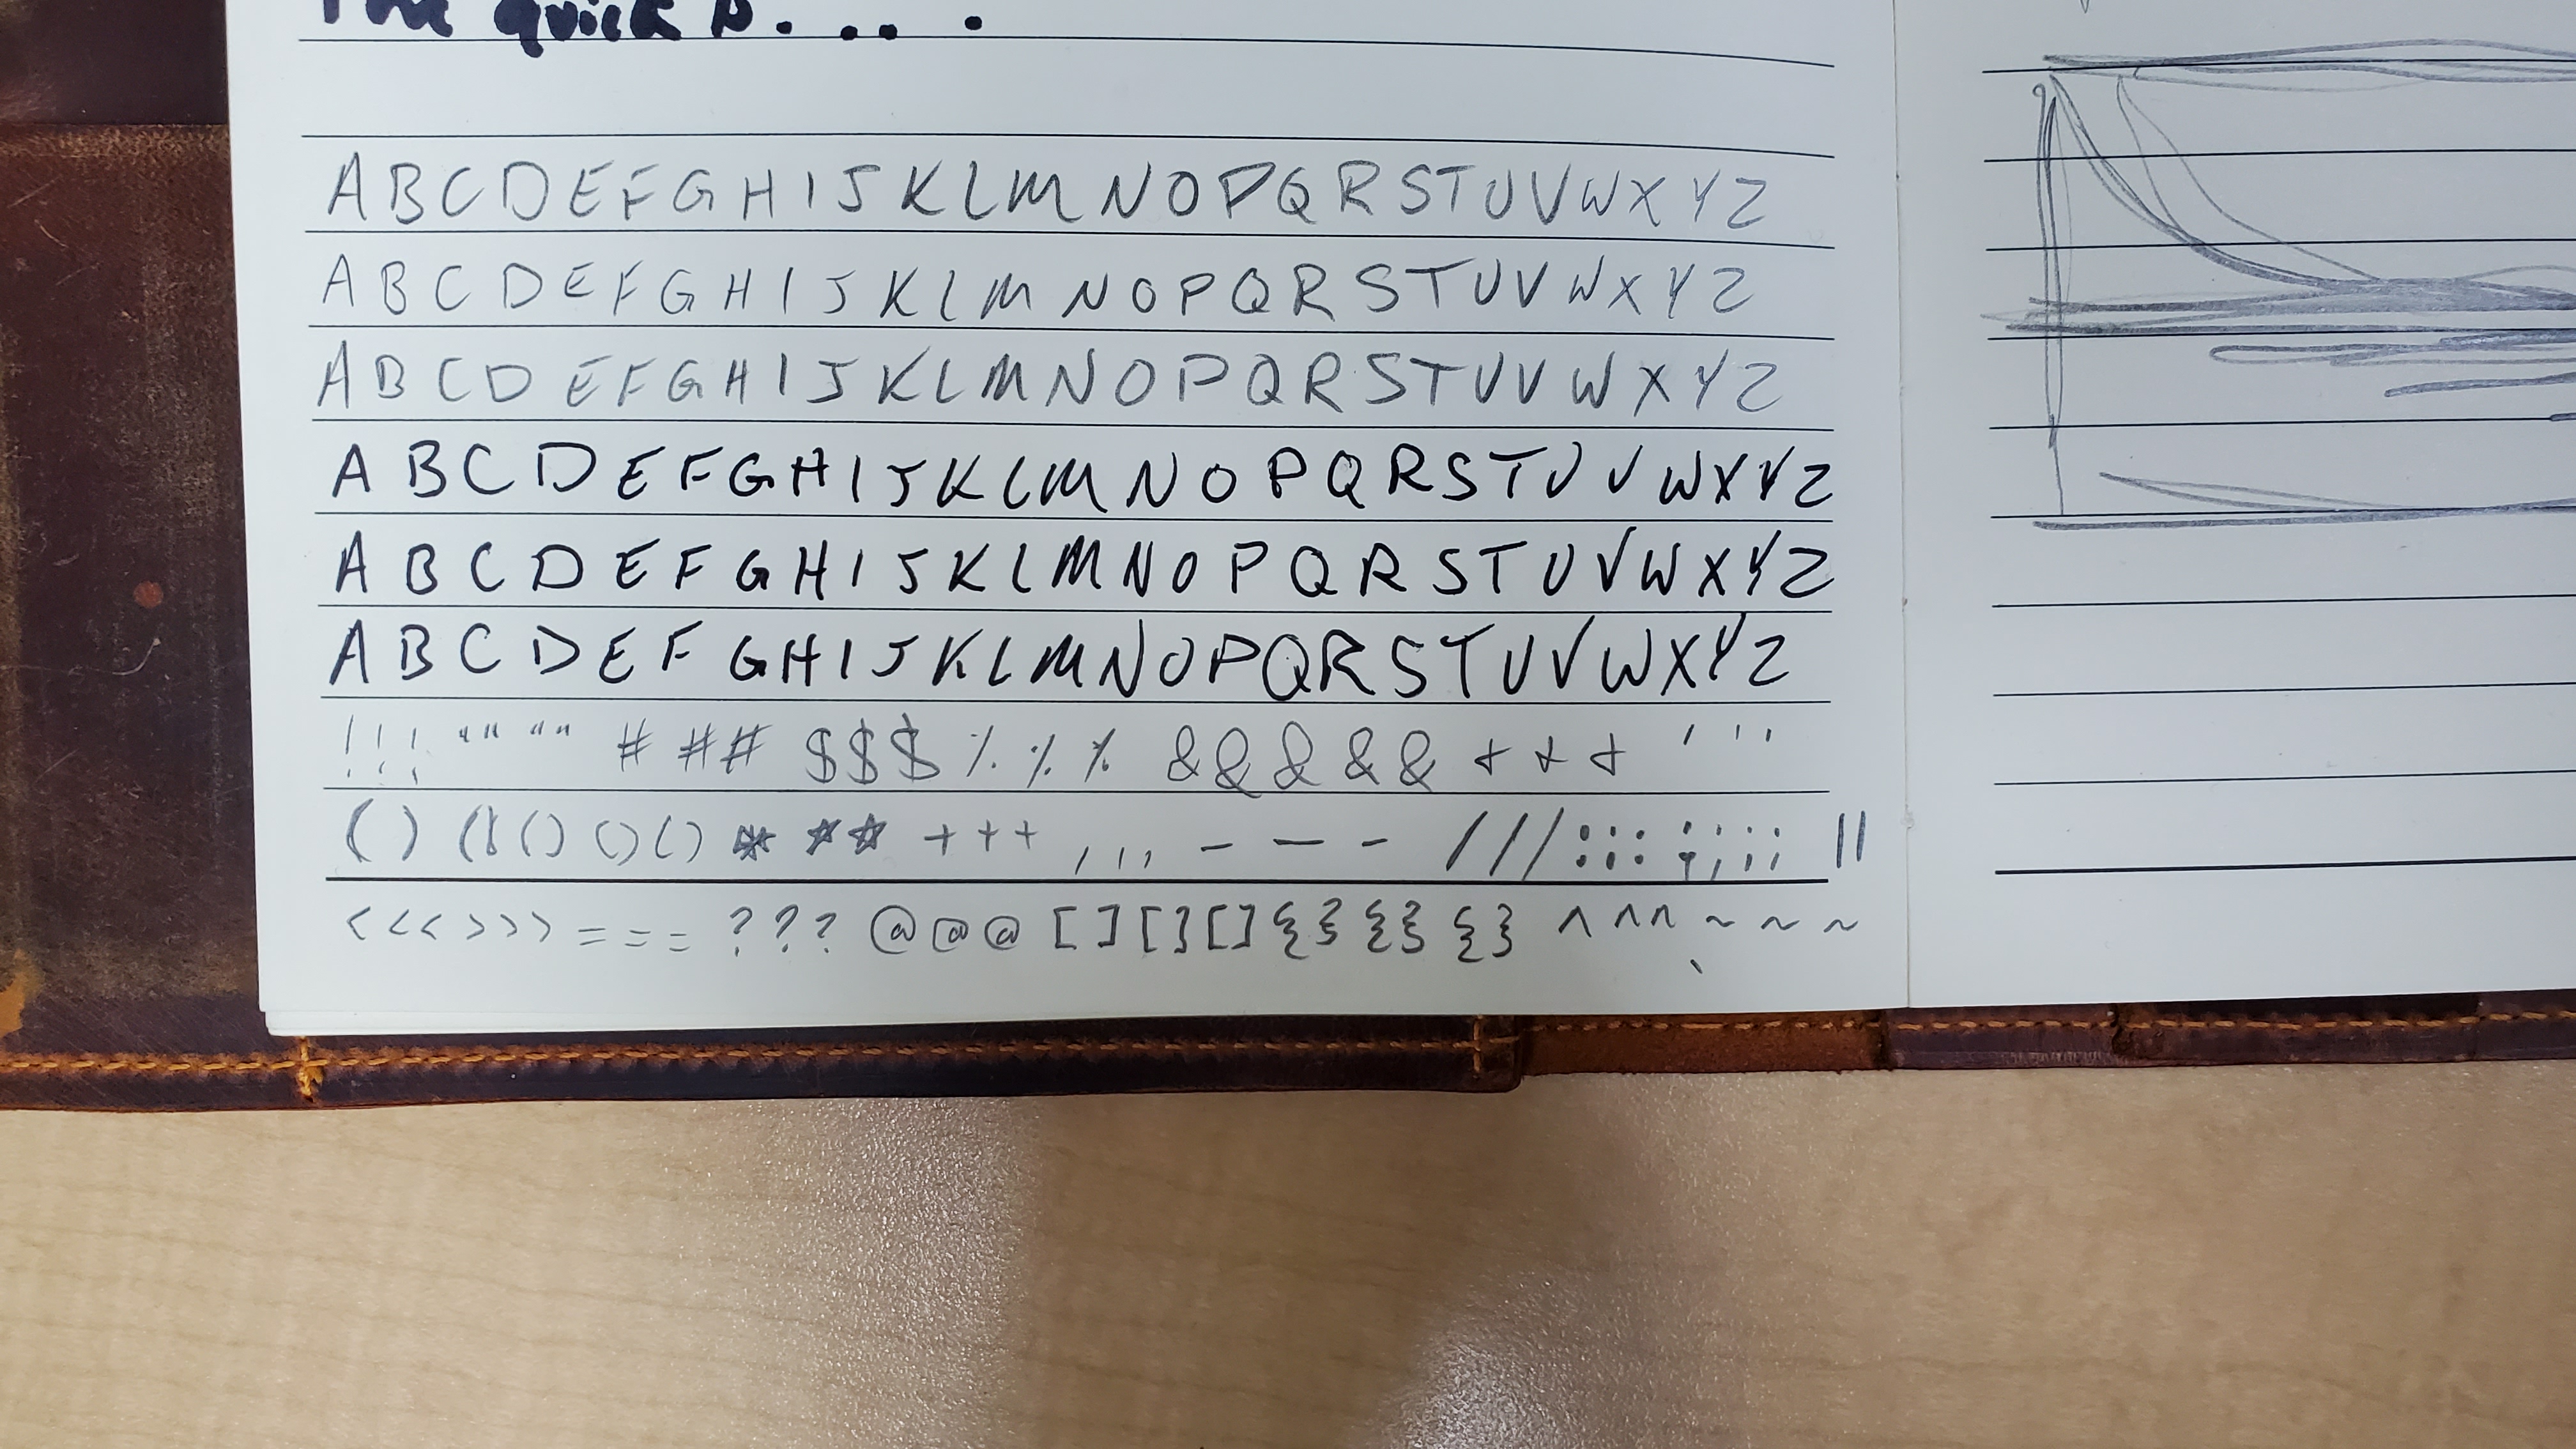 The quick P....
ABCDEFGHIJKLMNOPQRSTUVWXYZ
ABCDEFGHIJKLMNOPQRSTUVWXYZ
ABCDEFGHIJKLMNOPQRSTUVWXYZ
ABCDEFGHIJKLMNOPQRSTUVWXYZ
ABCDEFGHIJKLMNOPQRSTUVWXYZ
ABCDEFGHIJKLMNOPQRSTUVWXYZ
!!! """ ### $$$ %%% &&&&& +++ '''
()(()()()() *** +++ ,,, --- /// ::: ;;;; ||
<<<>>> === ??? @@@ [][][] {}{}{}{} ^^^ ` ~~~